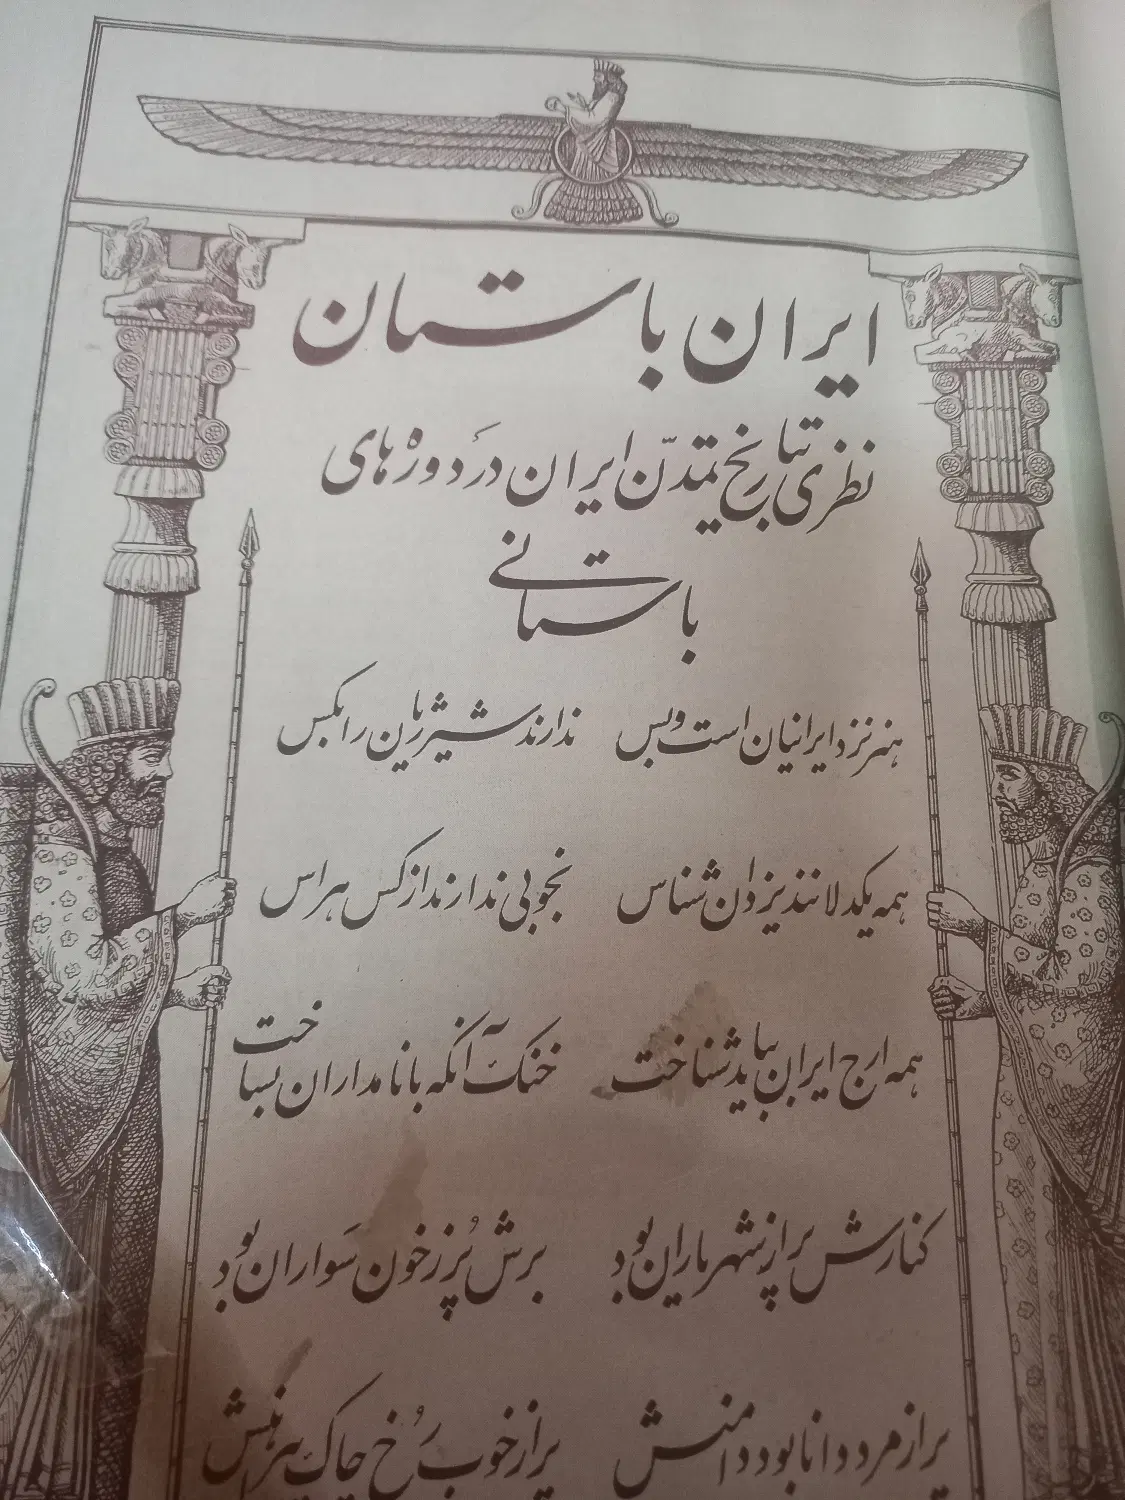 ایران باستان
نظری بتاریخ تمدّن ایران در دوره های
باستانی
هنر نزد ایرانیان است و بس ندارند شیر ژیان را بکس
همه یکدلانند یزدان شناس نجوبی ندارند از کس هراس
همه ارج ایران بباید شناخت خنک آنکه با نامداران بساخت
کنارش پر از شهریاران بود برش پُر ز خون سَواران بود
پر از مرد دانا بود دامنش پر از خوب رُخ چاک پیرهنش